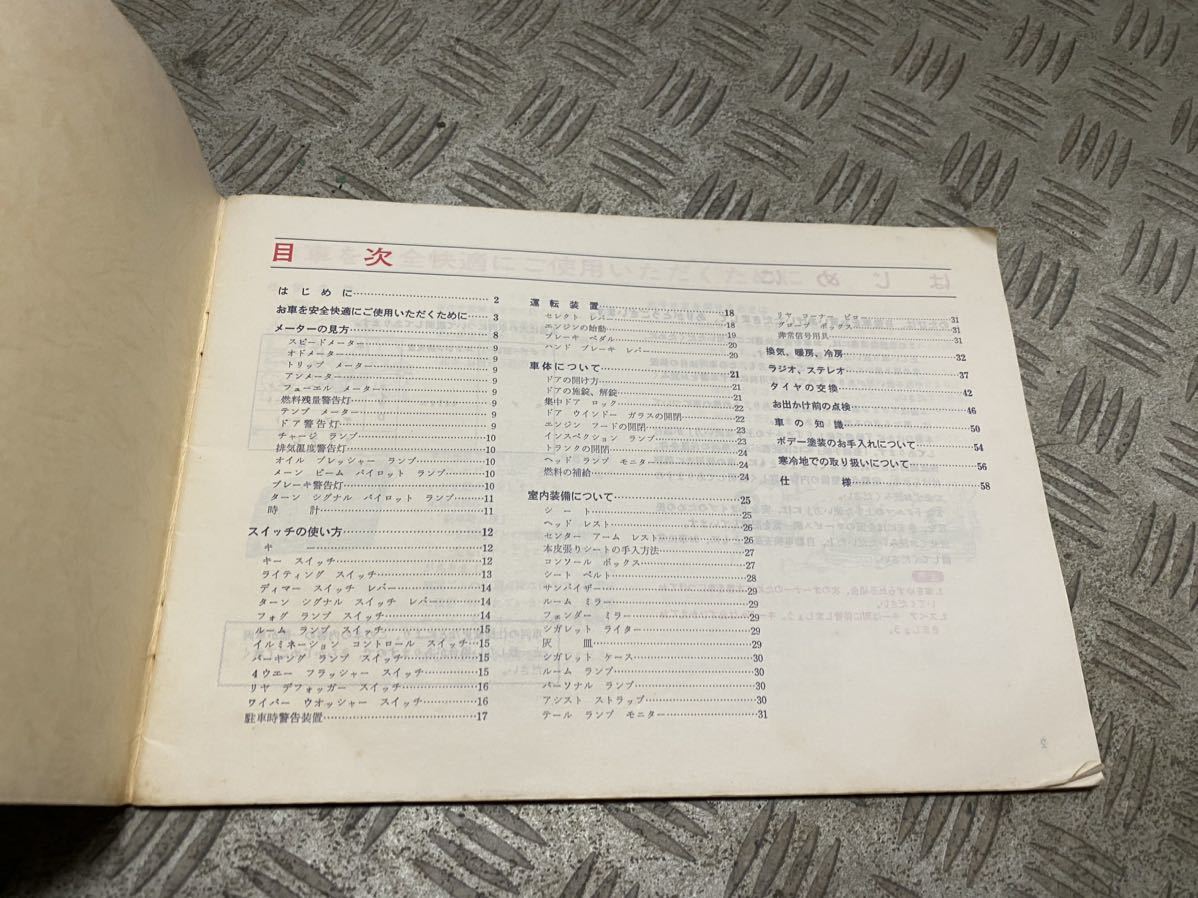 目次
はじめに……2
お車を安全快適にご使用いただくために……3
メーターの見方……8
スピードメーター……9
オドメーター……9
トリップ メーター……9
アンメーター……9
フューエル メーター……9
燃料残量警告灯……9
テンプ メーター……9
ドア警告灯……9
チャージ ランプ……10
排気温度警告灯……10
オイル プレッシャー ランプ……10
メーン ビーム パイロット ランプ……10
ブレーキ警告灯……10
ターン シグナル パイロット ランプ……11
時計……11
スイッチの使い方……12
キー……12
キー スイッチ……12
ライティング スイッチ……13
ディマー スイッチ レバー……14
ターン シグナル スイッチ レバー……14
フォグ ランプ スイッチ……14
ルーム ランプ スイッチ……15
イルミネーション コントロール スイッチ……15
パーキング ランプ スイッチ……15
4ウエー フラッシャー スイッチ……15
リヤ デフォッガー スイッチ……16
ワイパー ウオッシャー スイッチ……16
駐車時警告装置……17
運転装置……18
セレクト レバー……18
エンジンの始動……19
ブレーキ ペダル……20
ハンド ブレーキ レバー……20
車体について……21
ドアの開け方……21
ドアの施錠、解錠……21
集中ドア ロック……22
ドア ウインドー ガラスの開閉……22
エンジン フードの開閉……23
インスペクション ランプ……23
トランクの開閉……24
ヘッド ランプ モニター……24
燃料の補給……24
室内装備について……25
シート……25
ヘッド レスト……26
センター アーム レスト……26
本皮張りシートの手入方法……27
コンソール ボックス……27
シート ベルト……28
サンバイザー……29
ルーム ミラー……29
フェンダー ミラー……29
シガレット ライター……29
灰皿……29
シガレット ケース……30
ルーム ランプ……30
パーソナル ランプ……30
アシスト ストラップ……30
テール ランプ モニター……31
リア ピロー……31
グローブ ボックス……31
非常信号用具……31
換気、暖房、冷房……32
ラジオ、ステレオ……37
タイヤの交換……42
お出かけ前の点検……46
車の知識……50
ボデー塗装のお手入れについて……54
寒冷地での取り扱いについて……56
仕様……58